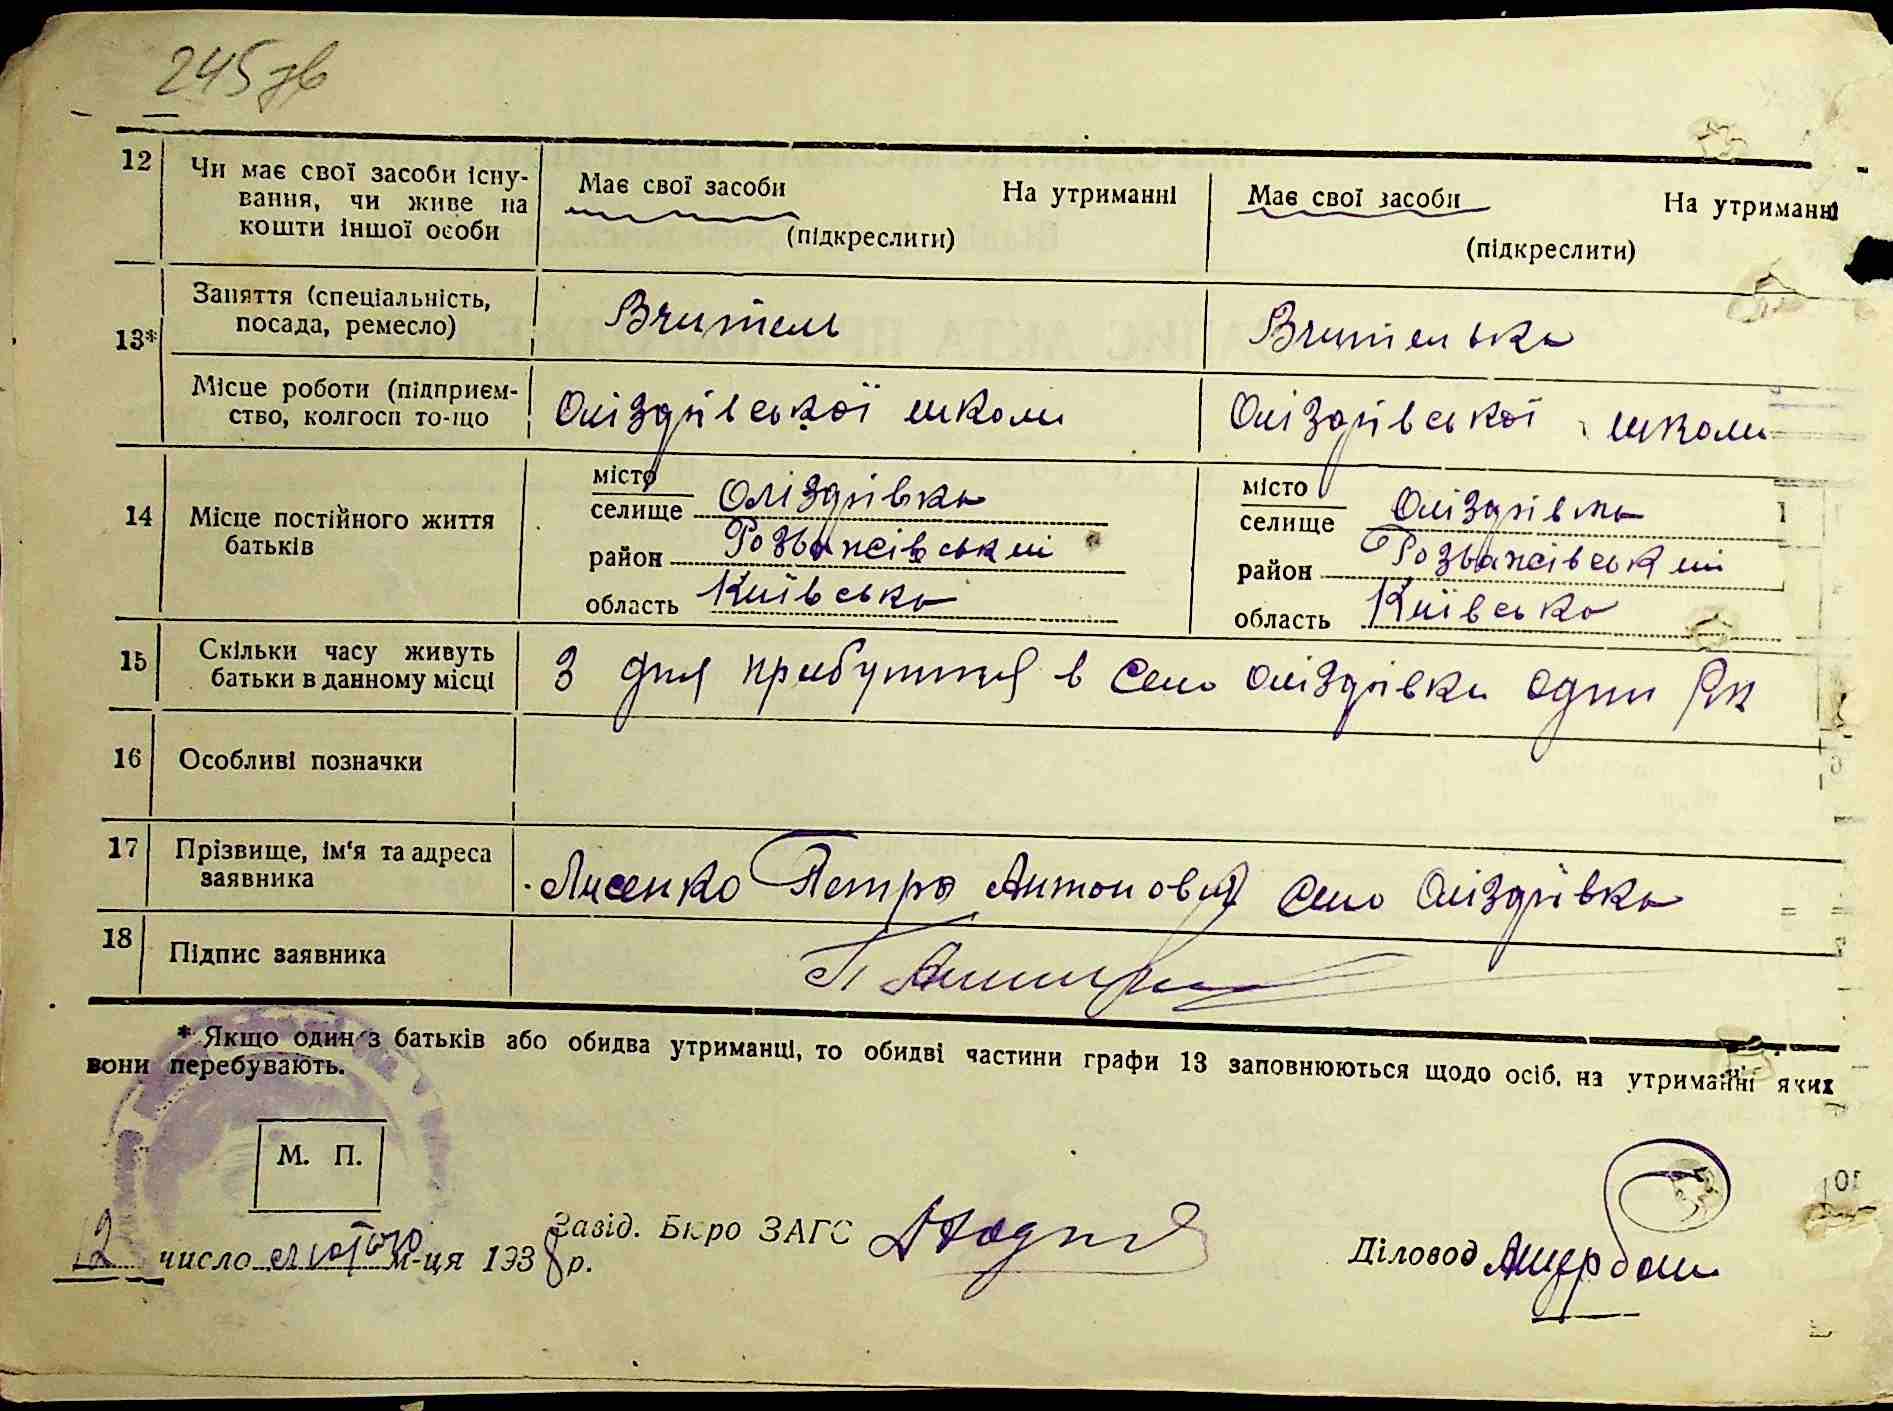 245 зв
12 Чи має свої засоби існу-
вання, чи живе на
кошти іншої особи
Має свої засоби На утриманні
(підкреслити)
Має свої засоби На утриманні
(підкреслити)
13*
Заняття (спеціальність,
посада, ремесло)
Вчитель
Вчителька
Місце роботи (підприєм-
ство, колгосп то-що
Оліздрівської школи
Оліздрівської школи
14 Місце постійного життя
батьків
місто
селище Оліздрівка
район Розважівський
область Київська
місто
селище Оліздрівка
район Розважівський
область Київська
15 Скільки часу живуть
батьки в данному місці
З дня прибуття в село Оліздрівки один рік
16 Особливі позначки
17 Прізвище, ім'я та адреса
заявника
Лисенко Петро Антонович село Оліздрівка
18 Підпис заявника
* Якщо один з батьків або обидва утриманці, то обидві частини графи 13 заповнюються щодо осіб, на утриманні яких
вони перебувають.
М. П.
12 число лютого м-ця 1938 р.
Завід. Бюро ЗАГС
Діловод